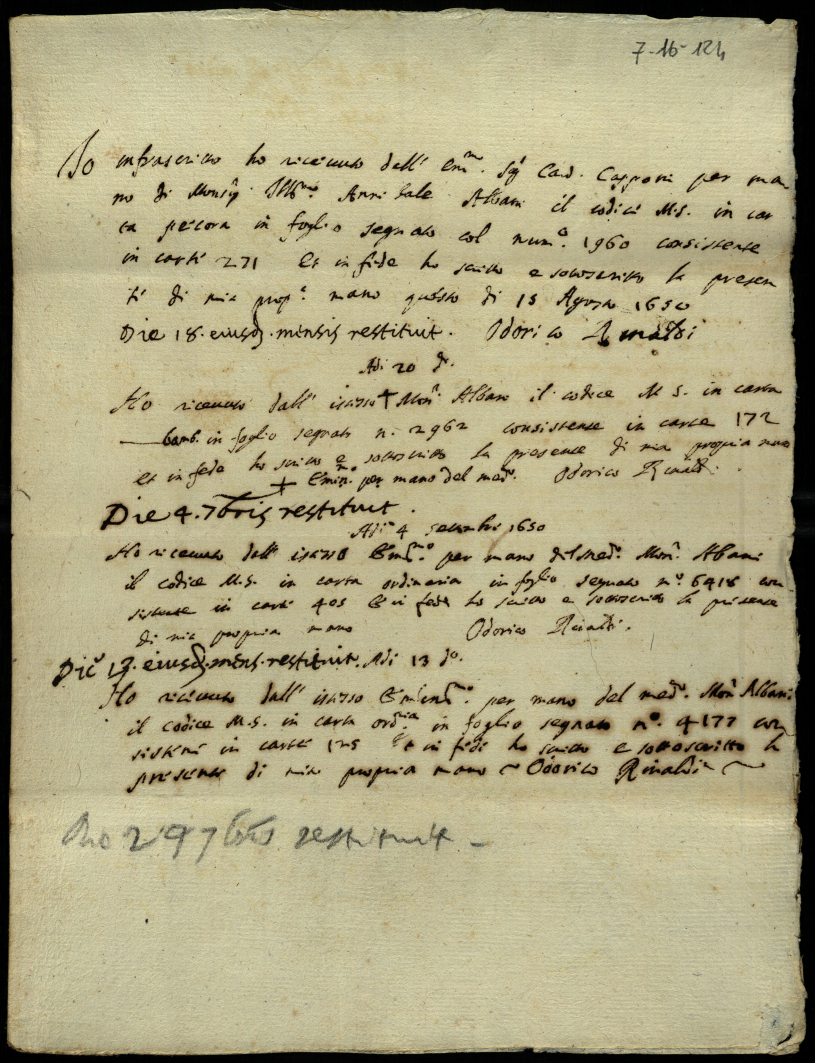 7-16-124
Io infrascritto ho ricevuto dall' Em.mo Sig.r Card. Capponi per ma
no di Monsig.r Ill.mo Annibale Albani il codice M.S. in car
ta pecora in foglio segnato col num.o 1960 consistente
in carte 271 et in fede ho scritto e sottoscritto la presen
te di mia prop.a mano questo dì 15 Agosto 1650
Die 18. eiusd. mensis restituit. Odorico Rinaldi
Adi 20 d.o
Ho ricevuto dall' istesso + Mon.r Albani il codice M S. in carta
bomb. in foglio segnato n. 2962 consistente in carte 172
et in fede ho scritto e sottoscritto la presente di mia propria mano
+ Emin.mo per mano del med.o Odorico Rinaldi.
Die 4. 7bris restituit.
Adi 4 settembre 1650
Ho ricevuto dall' istesso Em.mo per mano del med.o Mon.r Albani
il codice M.S. in carta ordinaria in foglio segnato n.o 6418 con
sistente in carte 405 et in fede ho scritto e sottoscritto la presente
di mia propria mano Odorico Rinaldi.
Die 13. eiusd. mens. restituit. Adi 13 d.o
Ho ricevuto dall' istesso Emin.mo per mano del med.o Mon.r Albani
il codice M.S. in carta ord.ria in foglio segnato n.o 4177 con
sistente in carte 125 et in fede ho scritto e sottoscritto la
presente di mia propria mano ~ Odorico Rinaldi ~
24 7bris restituit -